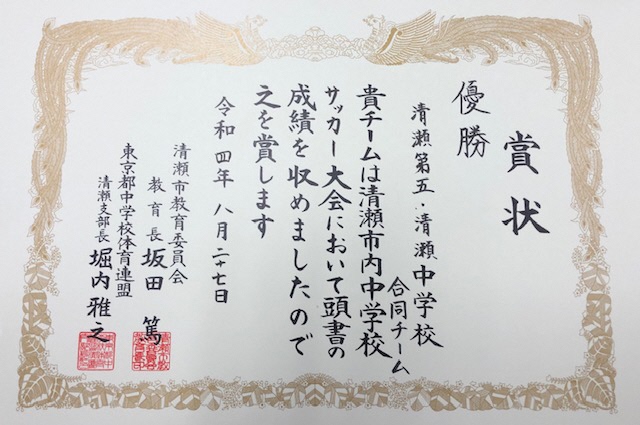 賞状
優勝
清瀬第五・清瀬中学校
合同チーム
貴チームは清瀬市内中学校
サッカー大会において頭書の
成績を収めましたので
之を賞します
令和四年八月二十七日
清瀬市教育委員会
教育長 坂田篤
東京都中学校体育連盟
清瀬支部長 堀内雅之